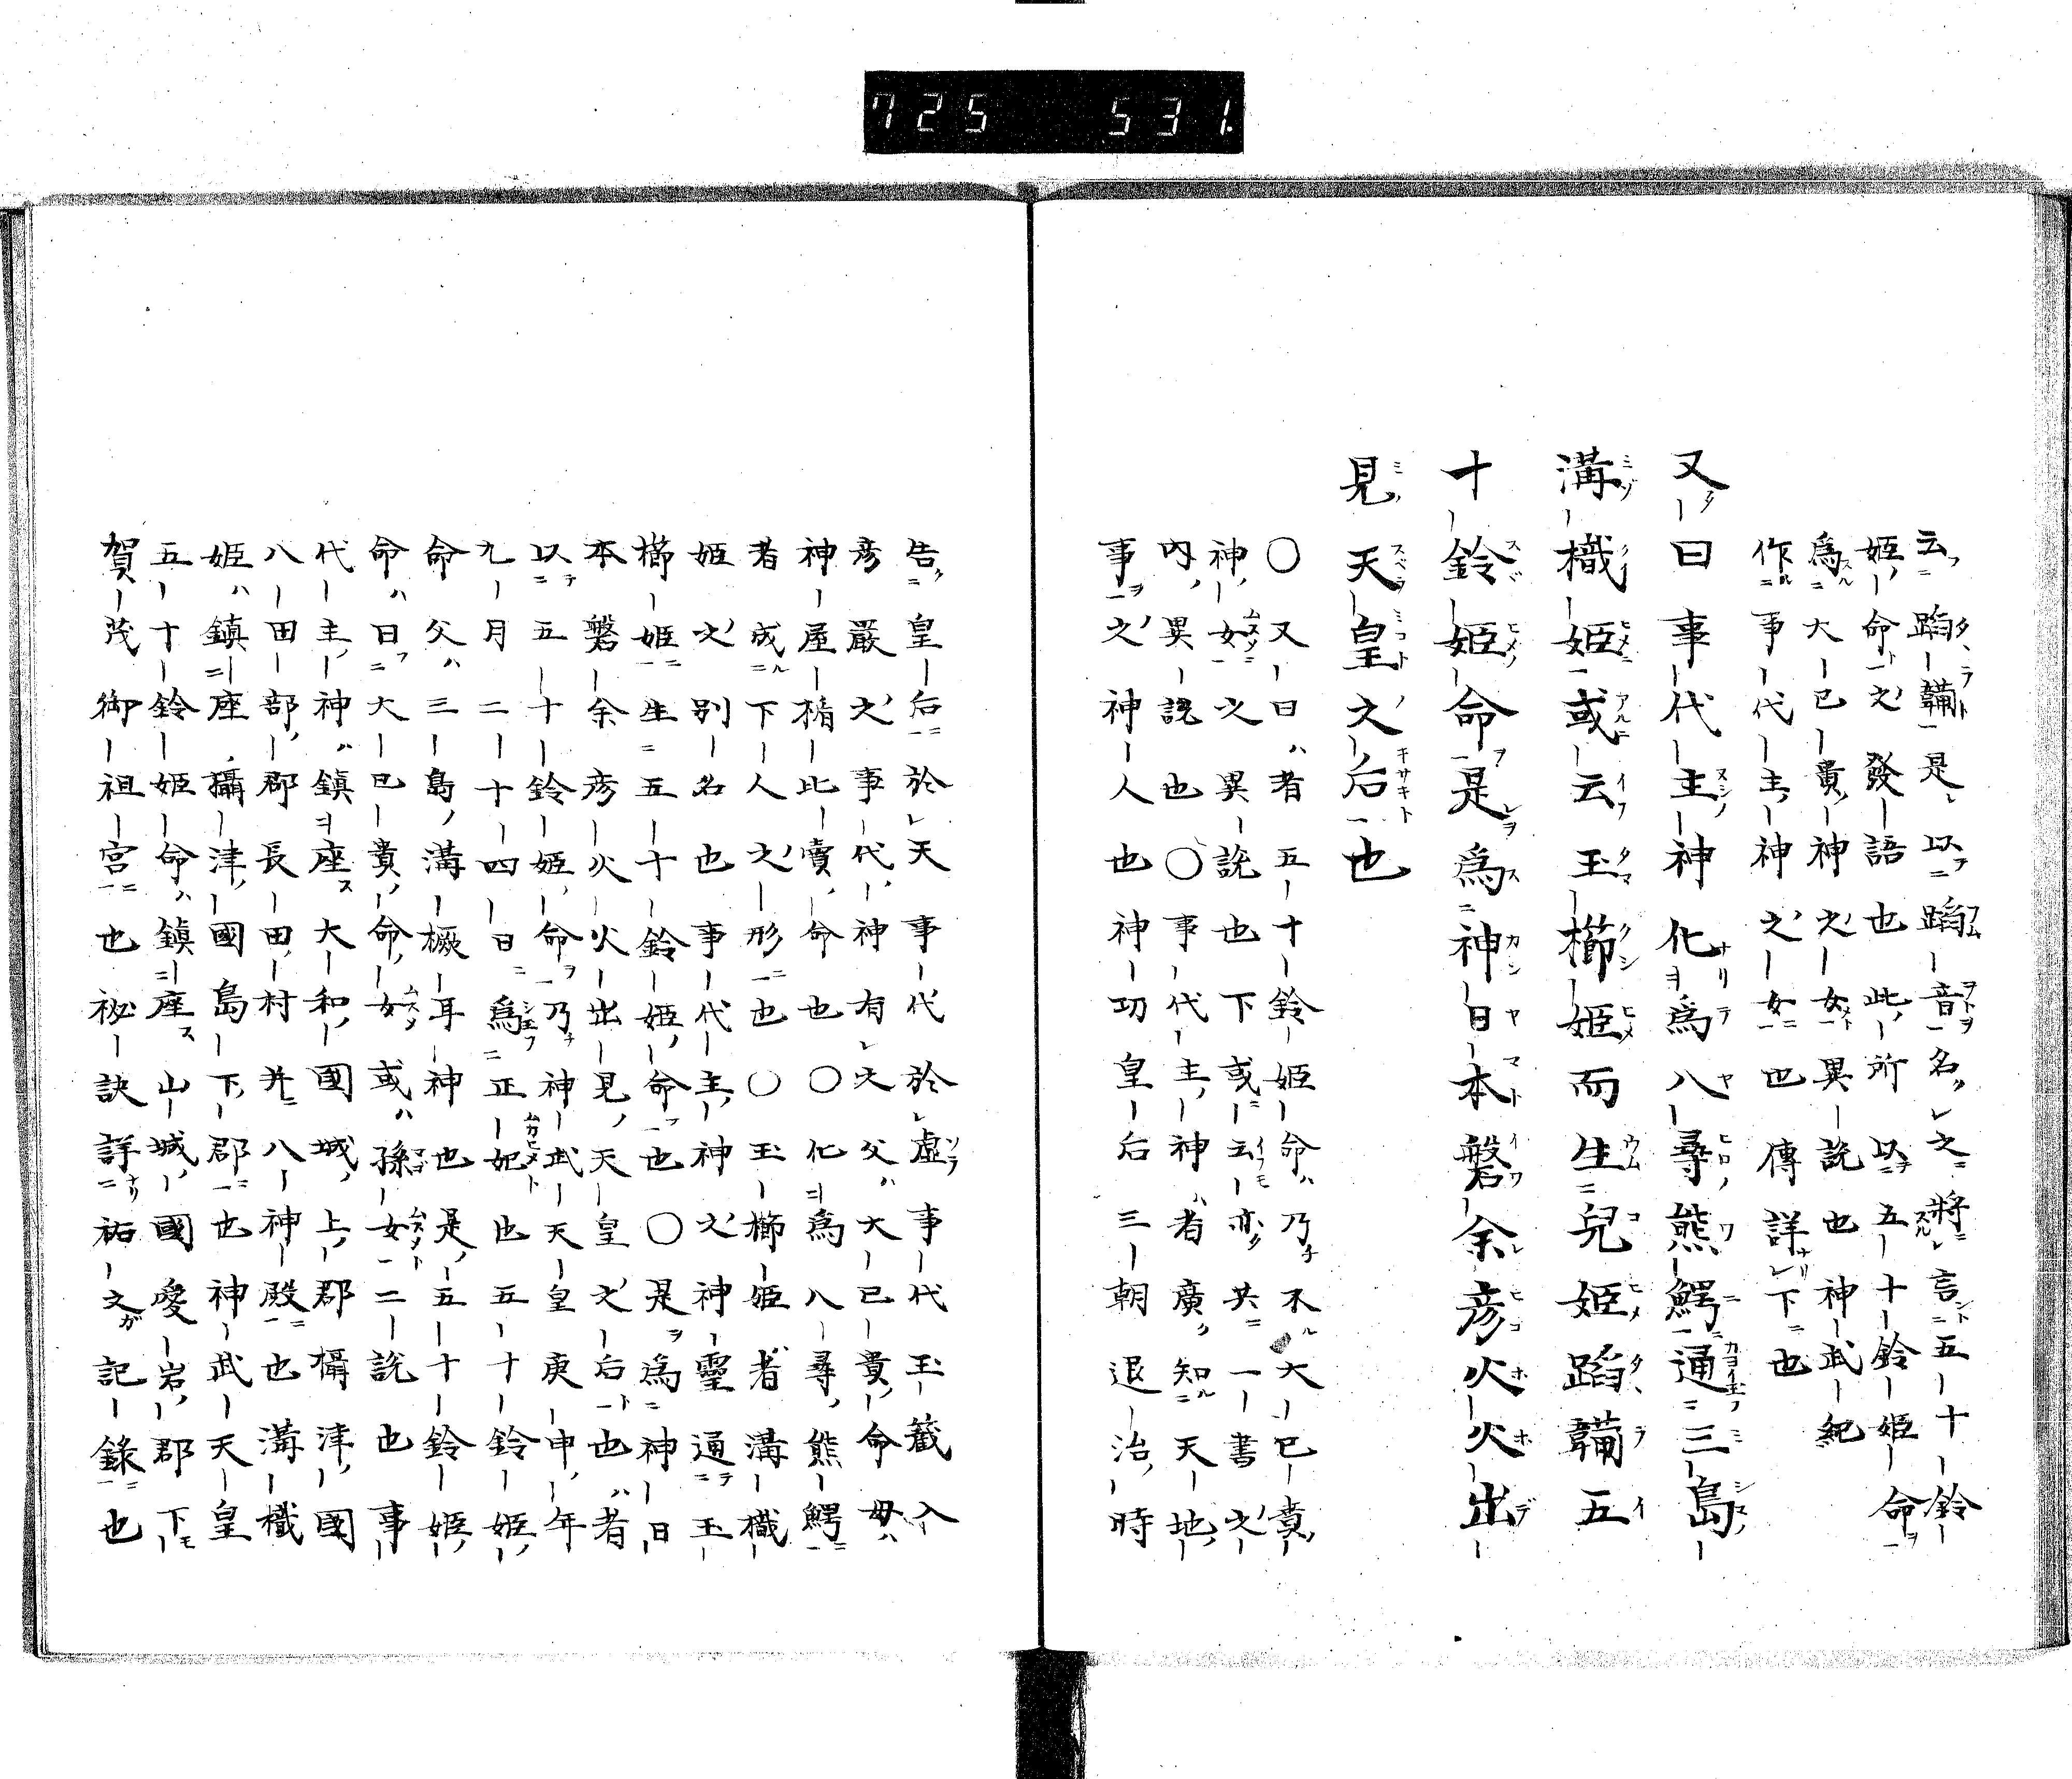 725 531.
云蹈鞴是以蹈音名之將言五十鈴
姫命之發語也此所以五十鈴姫命
爲大已貴神之女異説也神武紀
作事代主神之女也傳詳下也
又曰事代主神化爲八尋熊鰐通三島
溝樴姫或云玉櫛姫而生兒姫蹈鞴五
十鈴姫命是爲神日本磐余彦火火出
見天皇之后也
〇又曰者五十鈴姫命乃不大已貴
神女之異説也下或云亦共一書之
内異説也〇事代主神者廣知天地
事之神人也神功皇后三朝退治時
告皇后於天事代於虚事代玉籤入
彦嚴之事代神有之父大已貴命母
神屋楯比賣命也〇化爲八尋熊鰐
者成下人之形也〇玉櫛姫者溝樴
姫之別名也事代主神之神靈通玉
櫛姫生五十鈴姫命也〇是爲神日
本磐余彦火火出見天皇之后也者
以五十鈴姫命乃神武天皇庚申年
九月二十四日爲正妃也五十鈴姫
命父三島溝橛耳神也是五十鈴姫
命曰大已貴命女或孫女二説也事
代主神鎮座大和國城上郡攝津國
八田部郡長田村并八神殿也溝樴
姫鎮座攝津國島下郡也神武天皇
五十鈴姫命鎮座山城國愛宕郡下
賀茂御祖宮也祕訣詳祐之記録也